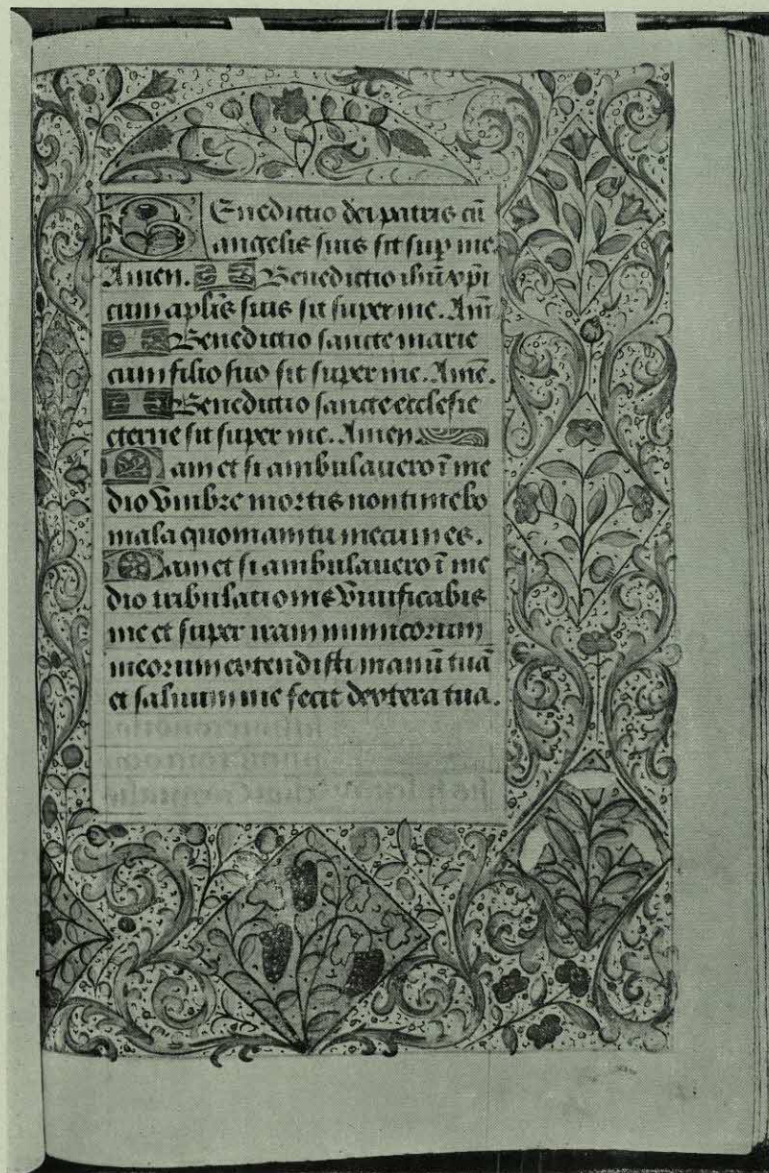 Benedictio dei patris cū
angelis suis sit sup me.
Amen. Benedictio ihū xpi
cum aplīs suis sit super me. Am̄
Benedictio sancte marie
cum filio suo sit super me. Amē.
Benedictio sancte ecclesie
eterne sit super me. Amen.
Nam et si ambulavero ī me
dio vmbre mortis non timebo
mala quoniam tu mecum es.
Nam et si ambulauero ī me
dio tribulationis viuificabis
me et super iram inimicorum
meorum extendisti manū tuā
et saluum me fecit dextera tua.